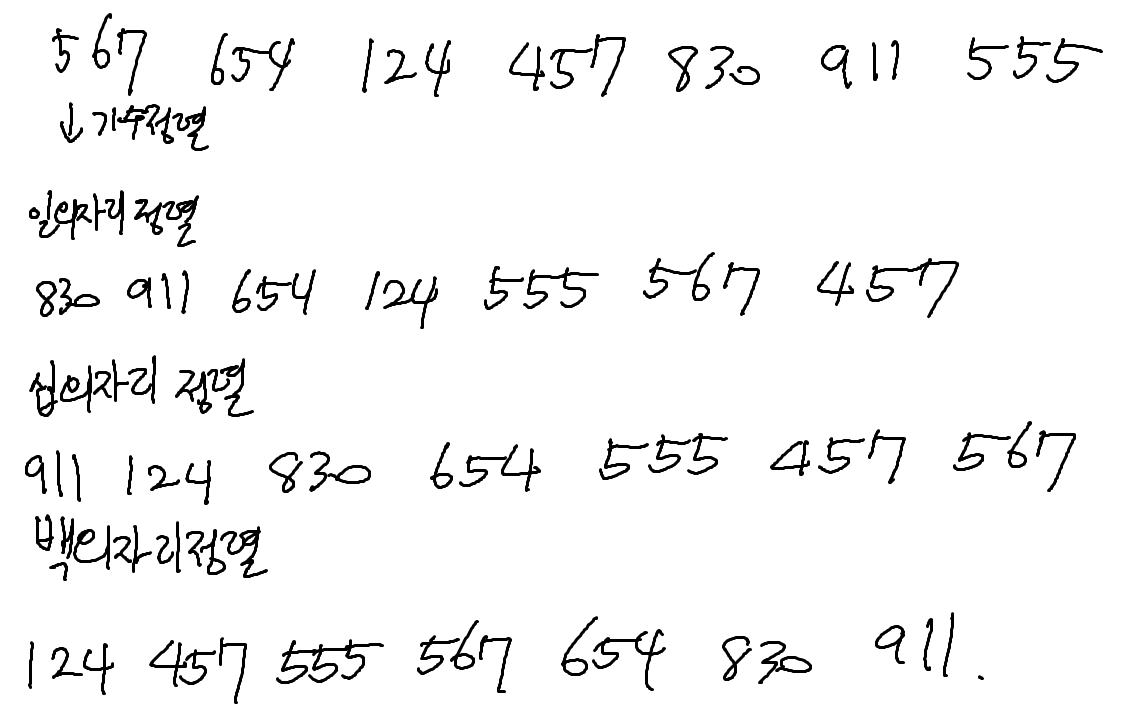 567 654 124 457 830 911 555
↓ 기수정렬
일의자리 정렬
830 911 654 124 555 567 457
십의자리 정렬
911 124 830 654 555 457 567
백의자리정렬
124 457 555 567 654 830 911.